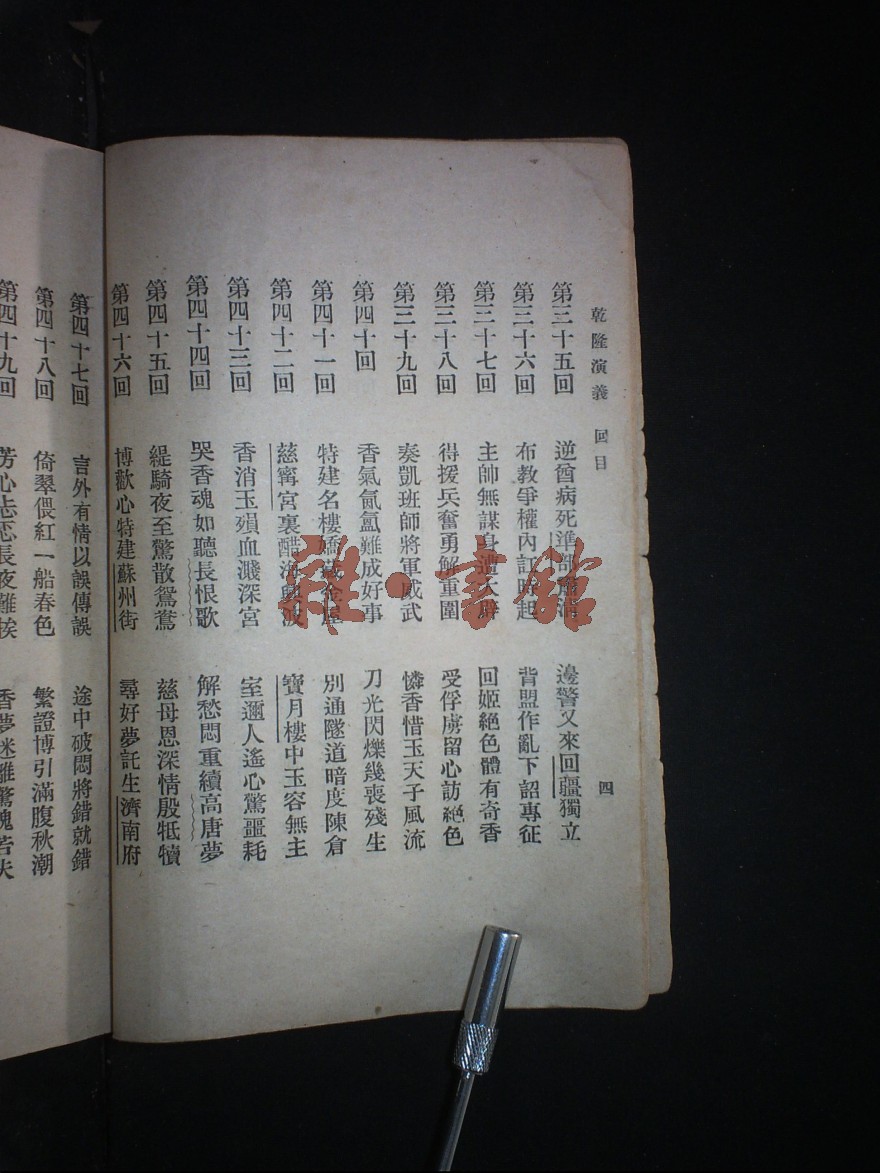 乾隆演義 回目 四
第三十五回 逆酋病死準部肅清 邊警又來回疆獨立
第三十六回 布教爭權內訌時起 背盟作亂下詔專征
第三十七回 主帥無謀身遭大辟 回姬絕色體有奇香
第三十八回 得援兵奮勇解重圍 受俘虜留心訪絕色
第三十九回 奏凱班師將軍威武 憐香惜玉天子風流
第四十回 香氣氤氳難成好事 刀光閃爍幾喪殘生
第四十一回 特建名樓嬌藏金屋 別通隧道暗度陳倉
第四十二回 慈寗宮裏醋海興波 寶月樓中玉容無主
第四十三回 香消玉殞血濺深宮 室邇人遙心驚噩耗
第四十四回 哭香魂如聽長恨歌 解愁悶重續高唐夢
第四十五回 緹騎夜至驚散鴛鴦 慈母恩深情殷牴犢
第四十六回 博歡心特建蘇州街 尋好夢託生濟南府
第四十七回 言外有情以誤傳誤 途中破悶將錯就錯
第四十八回 倚翠偎紅一船春色 繁證博引滿腹秋潮
第四十九回 芳心忐忑長夜難挨 香夢迷離驚魂若失
雜·書館